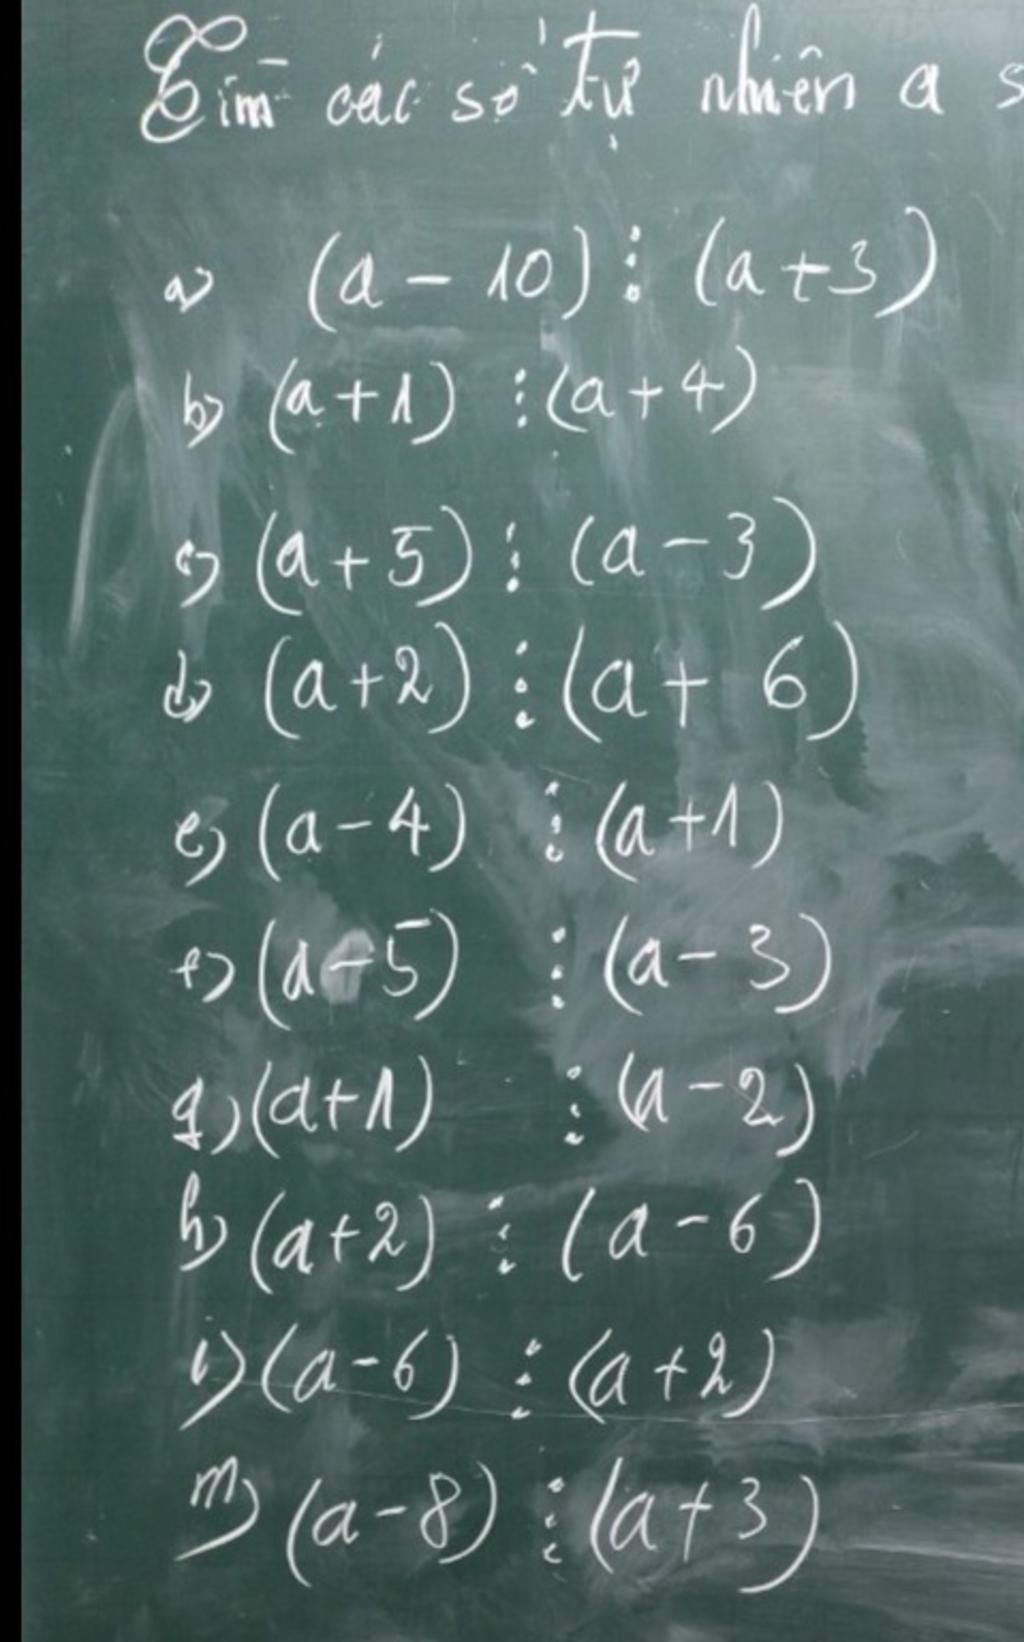 Tìm các số tự nhiên a s
a) (a - 10) ⋮ (a + 3)
b) (a + 1) ⋮ (a + 4)
c) (a + 5) ⋮ (a - 3)
d) (a + 2) ⋮ (a + 6)
e) (a - 4) ⋮ (a + 1)
f) (a - 5) ⋮ (a - 3)
g) (a + 1) ⋮ (a - 2)
h) (a + 2) ⋮ (a - 6)
i) (a - 6) ⋮ (a + 2)
m) (a - 8) ⋮ (a + 3)